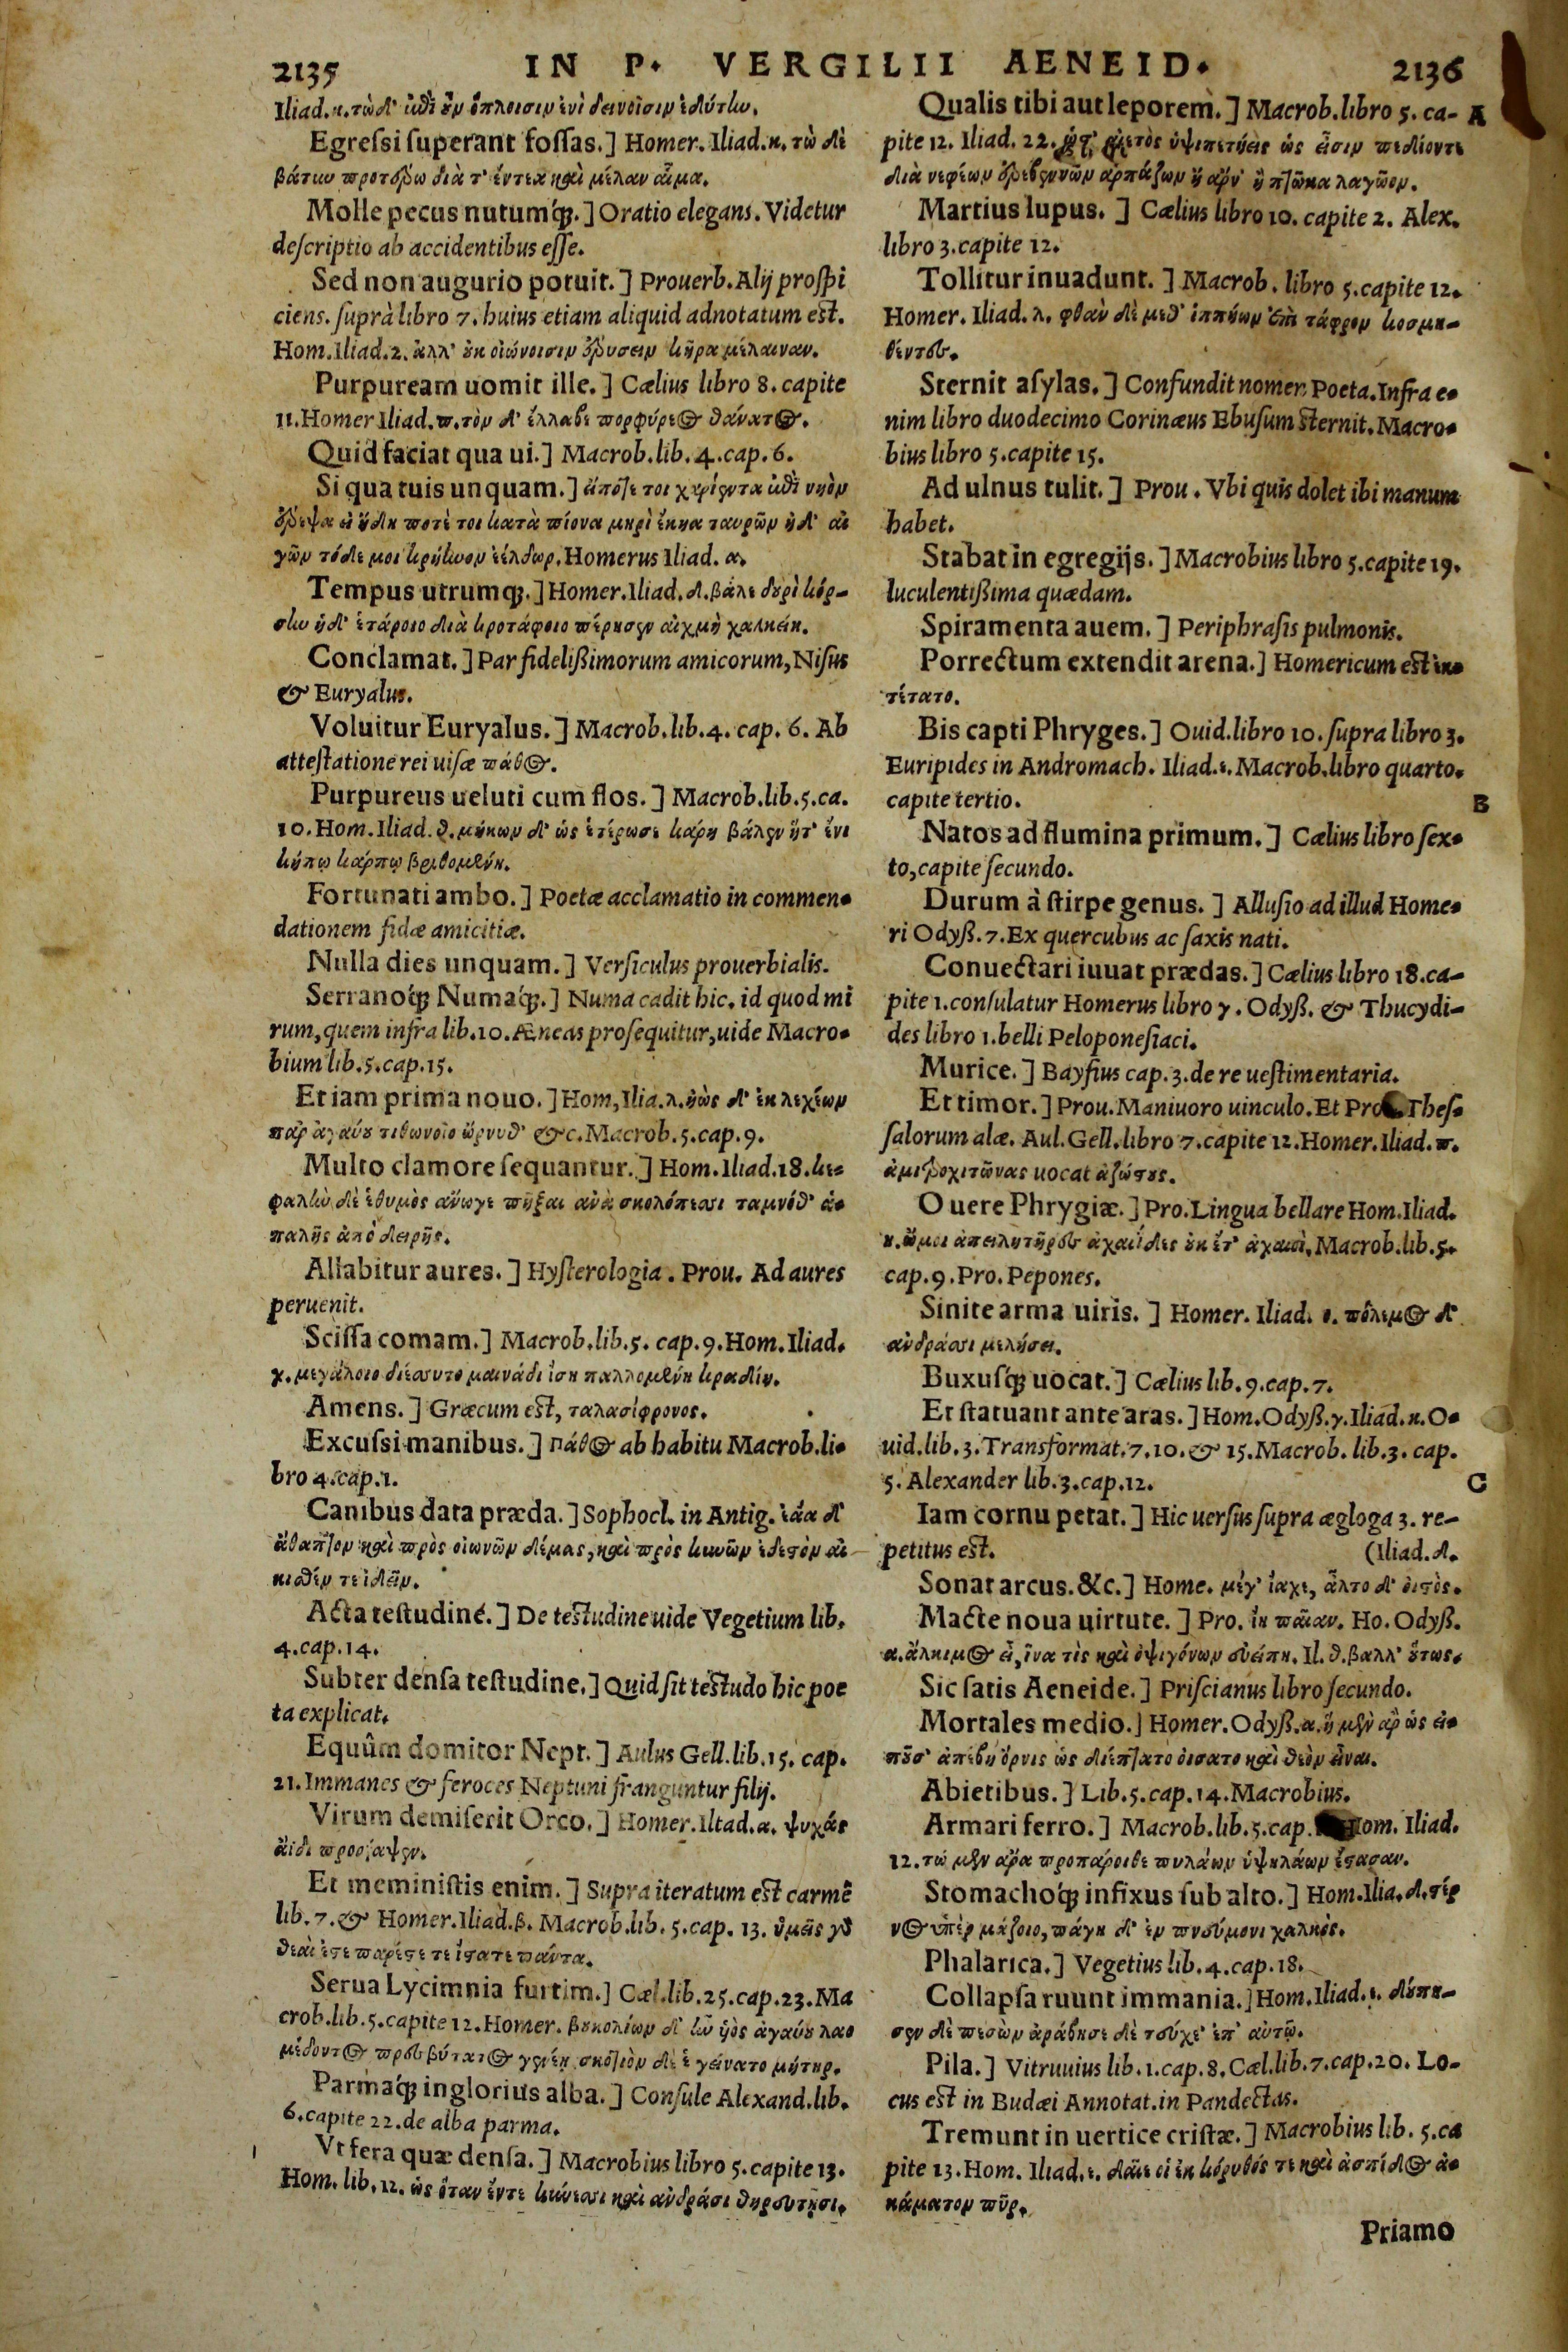 2135 IN P. VERGILII AENEID. 2136
Iliad.κ. τὼ δ' ὡς οὖν ὅπλοισιν ἐνὶ δεινοῖσιν ἐδύτην.
Egressi superant fossas.] Homer. Iliad.κ. τὼ δὲ
βάτην προτέρω διὰ τ' ἔντεα καὶ μέλαν αἷμα.
Molle pecus nutumq́;.] Oratio elegans. Videtur
descriptio ab accidentibus esse.
Sed non augurio potuit.] Prouerb. Alij prospi
ciens. suprà libro 7. huius etiam aliquid adnotatum est.
Hom. Iliad.2. ἀλλ' οὐκ οἰώνοισιν ἐρύσειν κῆρα μέλαιναν.
Purpuream uomit ille.] Cælius libro 8. capite
11. Homer Iliad.π. τὸν δ' ἔλλαβε πορφύρεος θάνατος.
Quid faciat qua ui.] Macrob.lib.4.cap.6.
Si qua tuis unquam.] εἴποτε τοι χαρίεντα ἐπὶ νηὸν
ἔρεψα εἰ ἤδη ποτὲ τοι κατὰ πίονα μηρὶ ἔκηα ταυρῶν ἠδ' αἰ
γῶν τόδε μοι κρήηνον ἐέλδωρ. Homerus Iliad. α.
Tempus utrumq;.] Homer. Iliad. δ. βάλε δουρὶ κόρ-
σην ἡ δ' ἑτάροιο διὰ κροτάφοιο πέρησεν αἰχμὴ χαλκείη.
Conclamat.] Par fidelißimorum amicorum, Nisus
& Euryalus.
Voluitur Euryalus.] Macrob.lib.4. cap. 6. Ab
attestatione rei uisæ πάθος.
Purpureus ueluti cum flos.] Macrob.lib.5.ca.
10. Hom. Iliad. θ. μήκων δ' ὡς ἑτέρωσε κάρη βάλεν ἥτ' ἐνι
κήπῳ κάρπῳ βριθομένη.
Fortunati ambo.] Poetæ acclamatio in commen-
dationem fidæ amicitiæ.
Nulla dies unquam.] Versiculus prouerbialis.
Serranoq́; Numaq́;.] Numa cadit hic. id quod mi
rum, quem infra lib.10. Æneas prosequitur, uide Macro-
bium lib.5.cap.15.
Et iam prima nouo.] Hom, Ilia.λ. ἠὼς δ' ἐκ λεχέων
παρ ἀγαυοῦ τιθωνοῖο ὤρνυθ' &c. Macrob.5.cap.9.
Multo clamore sequantur.] Hom. Iliad.18. κε-
φαλὴν δὲ ἑ θυμὸς ἄνωγε πῆξαι ἀνὰ σκολόπεσσι ταμνόθ' ἁ-
παλῆς ἀπὸ δειρῆς.
Allabitur aures.] Hysterologia. Prou. Ad aures
peruenit.
Scissa comam.] Macrob.lib.5. cap.9. Hom. Iliad.
χ. μεγάλοιο διέσσυτο μαινάδι ἴση παλλομένη κραδίην.
Amens.] Græcum est, ταλασίφρονος.
Excussi manibus.] Πάθος ab habitu Macrob.li-
bro 4.cap.1.
Canibus data præda.] Sophocl. in Antig. ἐᾶα δ'
ἄθαπτον καὶ πρὸς οἰωνῶν δέμας, καὶ πρὸς κυνῶν ἐδεστὸν αἰ
κισθέν τε ἰδεῖν.
Acta testudine.] De testudine uide Vegetium lib.
4.cap.14.
Subter densa testudine.] Quid sit testudo hic poe
ta explicat.
Equûm domitor Nept.] Aulus Gell.lib.15. cap.
21. Immanes & feroces Neptuni franguntur filij.
Virum demiserit Orco.] Homer. Iliad.α. ψυχάς
ἄϊδι προσίαψεν.
Et meministis enim.] Supra iteratum est carmē
lib.7. & Homer. Iliad.β. Macrob.lib. 5.cap. 13. ὑμεῖς γὰρ
θεαὶ ἐστε παρέστε τε ἴστατε πάντα.
Serua Lycimnia furtim.] Cæl.lib.25.cap.23. Ma
crob.lib.5.capite 12. Homer. βουκολίων δ' ἦν ὑὸς ἀγαυοῦ λαο
μέδοντος πρεσβύτατος γενεῇ σκότιον δέ ἑ γείνατο μήτηρ.
Parmaq́; inglorius alba.] Consule Alexand.lib.
6.capite 22. de alba parma.
Vt fera quæ densa.] Macrobius libro 5.capite 13.
Hom. lib.12. ὡς ὅταν ἔντε κύνεσσι καὶ ἀνδράσι θηρευτῇσι.
Qualis tibi aut leporem.] Macrob. libro 5. ca- A
pite 12. Iliad. 22. αἰετὸς ὑψιπετήεις ὡς εἶσιν πεδίοντε
διὰ νεφέων ἐρεβεννῶν ἁρπάξων ἢ ἄρν' ἢ πτῶκα λαγῶον.
Martius lupus.] Cælius libro 10. capite 2. Alex.
libro 3.capite 12.
Tollitur inuadunt.] Macrob. libro 5.capite 12.
Homer. Iliad. λ. φθὰν δὲ μεθ' ἱππήων ἐπὶ τάφρον κοσμη-
θέντες.
Sternit asylas.] Confundit nomen Poeta. Infra e-
nim libro duodecimo Corinæus Ebusum sternit. Macro-
bius libro 5.capite 15.
Ad ulnus tulit.] Prou. Vbi quis dolet ibi manum
habet.
Stabat in egregijs.] Macrobius libro 5.capite 19.
luculentißima quædam.
Spiramenta auem.] Periphrasis pulmonis.
Porrectum extendit arena.] Homericum est ἐκ-
τέτατο.
Bis capti Phryges.] Ouid. libro 10. supra libro 3.
Euripides in Andromach. Iliad.ι. Macrob. libro quarto.
capite tertio. B
Natos ad flumina primum.] Cælius libro sex-
to, capite secundo.
Durum à stirpe genus.] Allusio ad illud Home-
ri Odyß.7. Ex quercubus ac saxis nati.
Conuectari iuuat prædas.] Cælius libro 18.ca-
pite 1. consulatur Homerus libro γ. Odyß. & Thucydi-
des libro 1. belli Peloponesiaci.
Murice.] Bayfius cap.3. de re uestimentaria.
Et timor.] Prou. Maniuoro uinculo. Et Thes-
salorum alæ. Aul. Gell. libro 7.capite 12. Homer. Iliad. π.
ἀμιτροχιτῶνας uocat ἀζώστους.
O uere Phrygiæ.] Pro. Lingua bellare Hom. Iliad.
κ. ὤμοι ἀπειλητῆρες ἀχαιΐδες οὐκ ἔτ' ἀχαιοὶ, Macrob.lib.5.
cap.9. Pro. Pepones.
Sinite arma uiris.] Homer. Iliad. ο. πόλεμος δ'
ἀνδράσσι μελήσει.
Buxusq́; uocat.] Cælius lib.9.cap.7.
Et statuant ante aras.] Hom. Odyß.γ. Iliad.κ. O-
uid.lib.3. Transformat.7.10. & 15. Macrob. lib.3. cap.
5. Alexander lib.3.cap.12. C
Iam cornu petat.] Hic uersus supra ægloga 3. re-
petitus est. (Iliad.δ.
Sonat arcus.&c.] Home. μέγ' ἴαχε, ἆλτο δ' ὀιστὸς.
Macte noua uirtute.] Pro. ἰὴ παίαν. Ho. Odyß.
α. ἄλκιμος εἶ, ἵνα τὶς καὶ ὀψιγόνων εὐείπῃ. Il. θ. βαλλ' οὕτως.
Sic satis Aeneide.] Priscianus libro secundo.
Mortales medio.] Homer. Odyß.α. ἡ μὲν ἄρ ὡς εἰ-
ποῦσ' ἀπέβη ὄρνις ὡς διέπτατο ὀισατο καὶ θεὸν εἶναι.
Abietibus.] Lib.5.cap.14. Macrobius.
Armari ferro.] Macrob.lib.5.cap. Hom. Iliad.
12. τώ μὲν ἄρα προπάροιθε πυλάων ὑψηλάων ἕστασαν.
Stomachoq́; infixus sub alto.] Hom. Ilia. δ. στέρ
νος ὑπὲρ μάζοιο, πάγη δ' ἐν πνεύμονι χαλκὸς.
Phalarica.] Vegetius lib.4.cap.18.
Collapsa ruunt immania.] Hom. Iliad. ι. δούπη-
σεν δὲ πεσὼν ἀράβησε δὲ τεύχε' ἐπ' αὐτῷ.
Pila.] Vitruuius lib.1.cap.8. Cæl.lib.7.cap.20. Lo-
cus est in Budæi Annotat. in Pandectas.
Tremunt in uertice cristæ.] Macrobius lib. 5.ca
pite 13. Hom. Iliad.ε. δαῖε οἱ ἐκ κόρυθός τε καὶ ἀσπίδος ἀ-
κάματον πῦρ.
Priamo